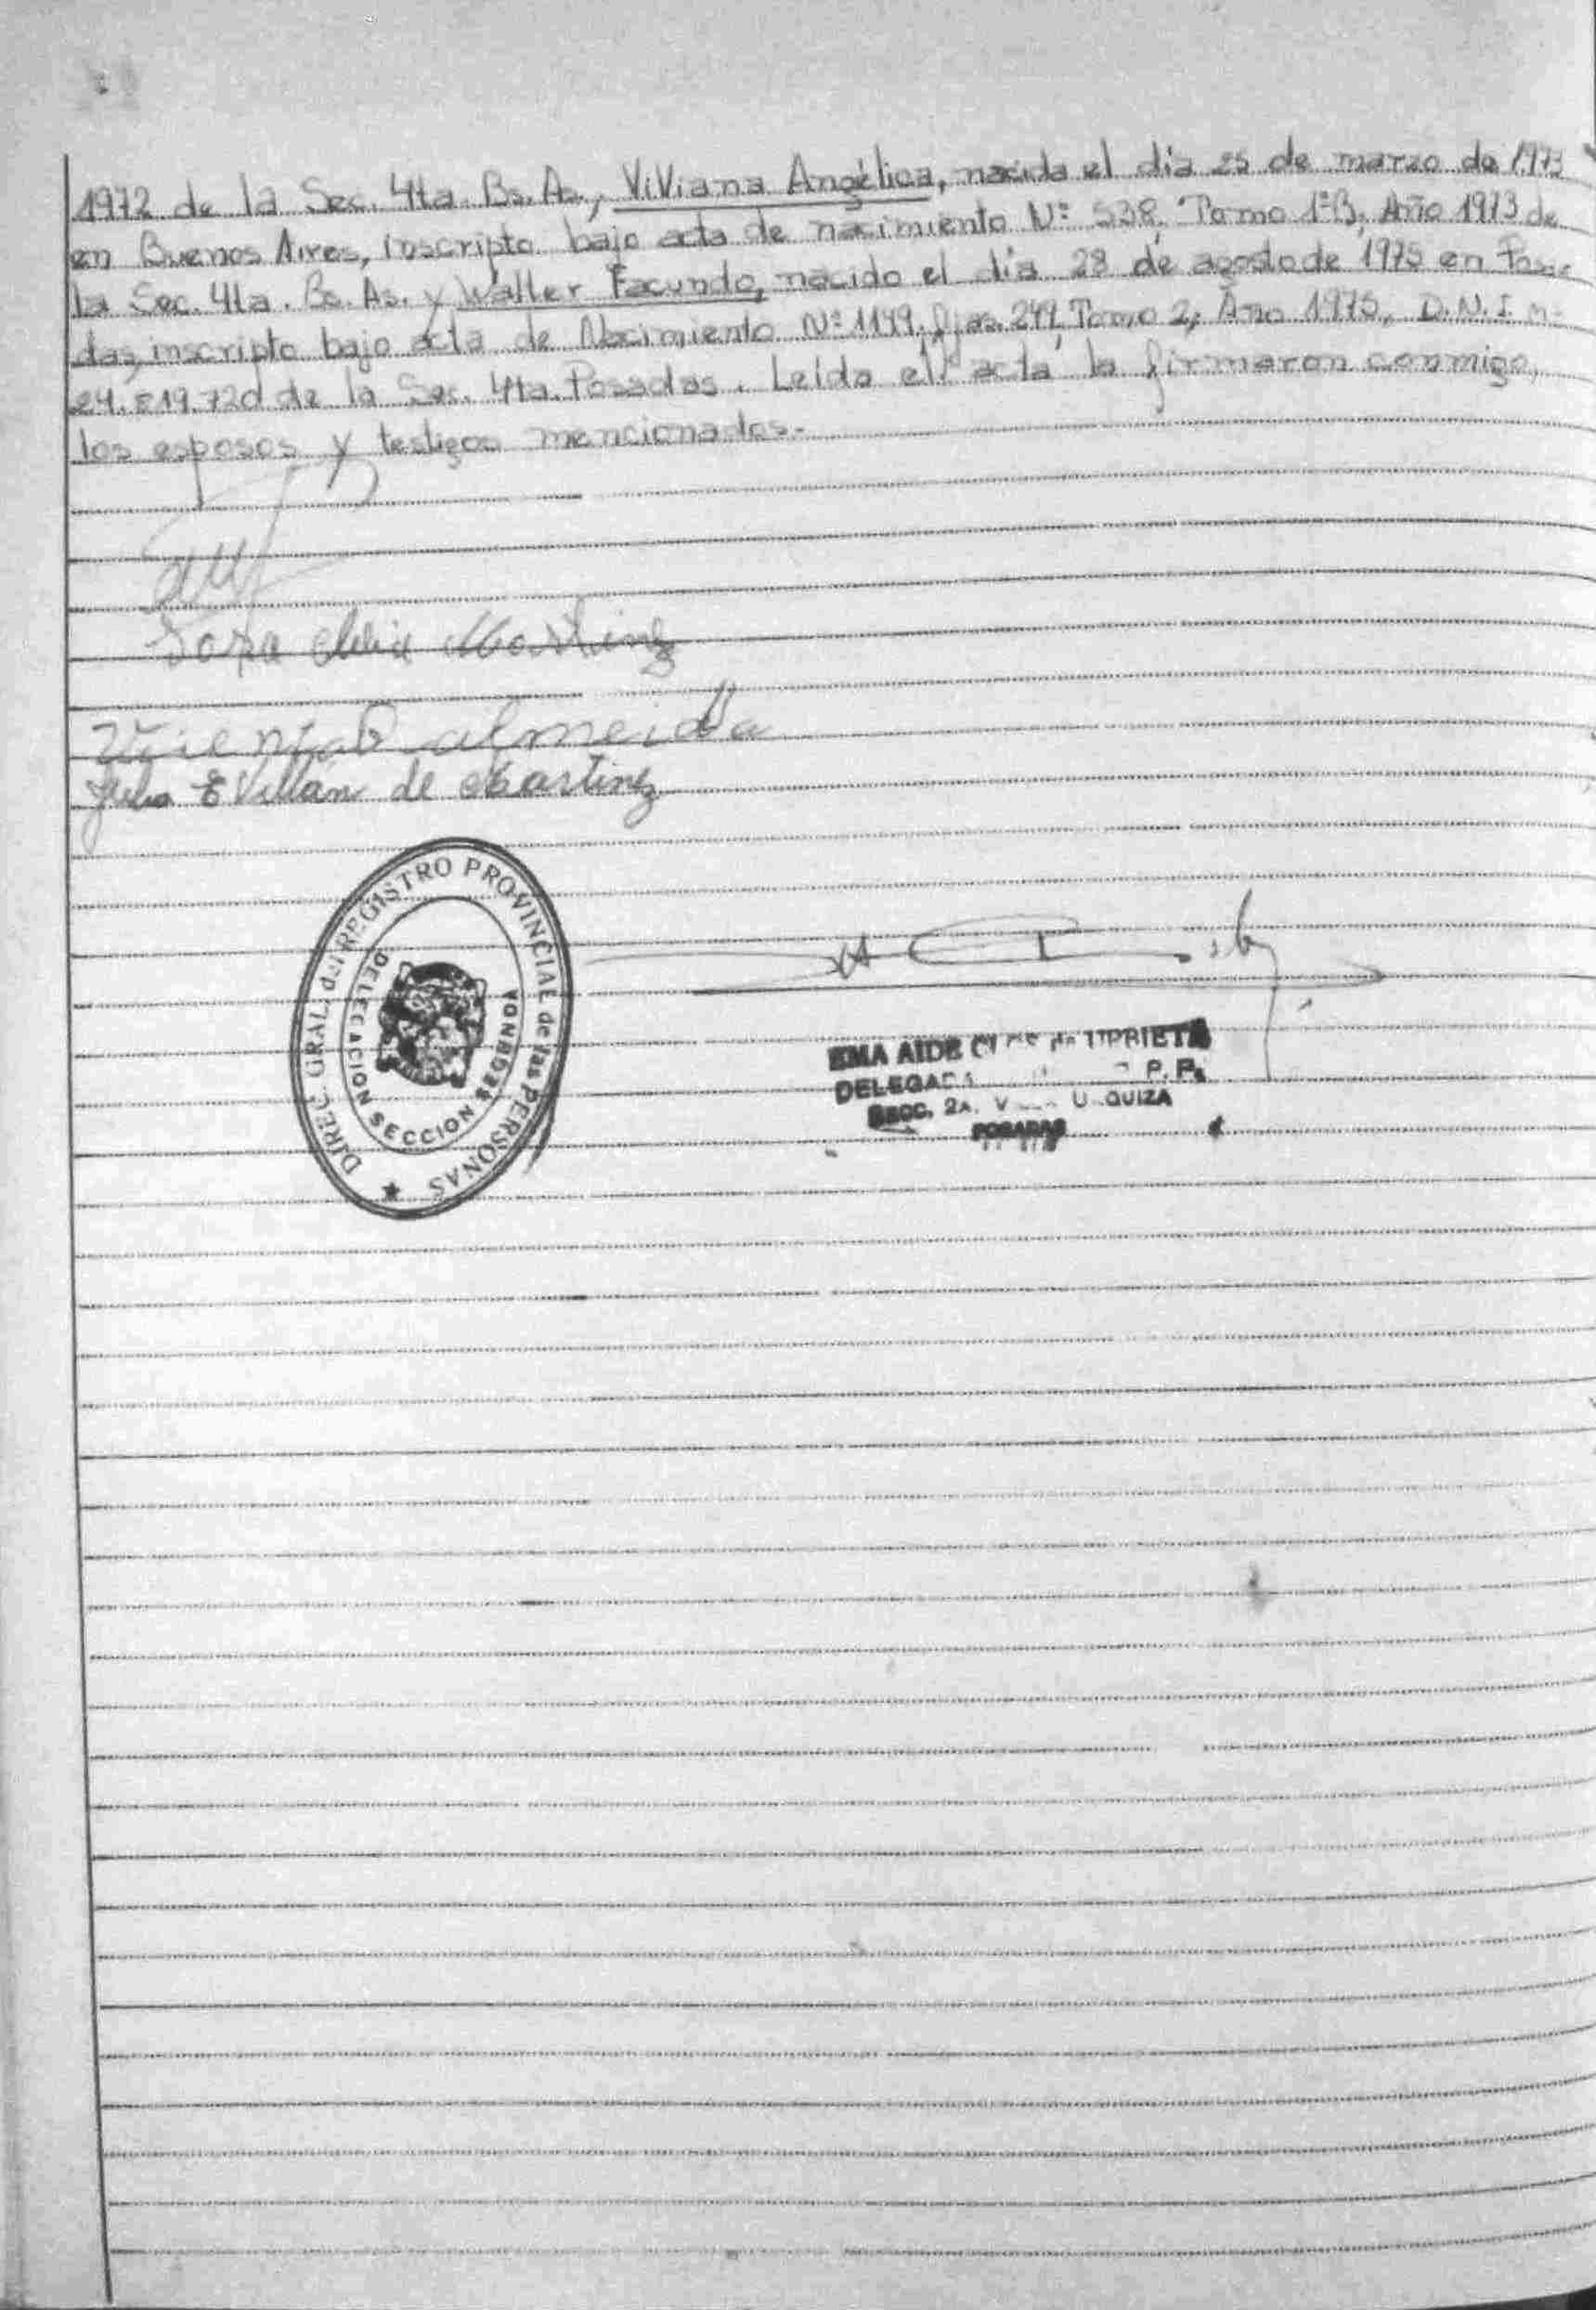 1972 de la Sec. 4ta. Bs. As., ViViana Angélica, nacida el día 25 de marzo de 1973
en Buenos Aires, inscripto bajo acta de nacimiento Nº 538, Tomo 1ºB, Año 1973 de
la Sec. 4ta. Bs. As. y Walter Facundo, nacido el día 28 de agosto de 1975 en Posa-
das, inscripto bajo acta de Nacimiento Nº 1149, fjas. 249, Tomo 2, Año 1975, D.N.I.
de la Sec. 4ta. Posadas. Leída el acta la firmaron conmigo,
los esposos y testigos mencionados.-
Martinez
almeida
Julia E Villán de Martinez
DIREC. GRAL. del REGISTRO PROVINCIAL de las PERSONAS
DELEGACION SECCION
EMA AIDE de
P. P.
SECC. 2A. URQUIZA
POSADAS